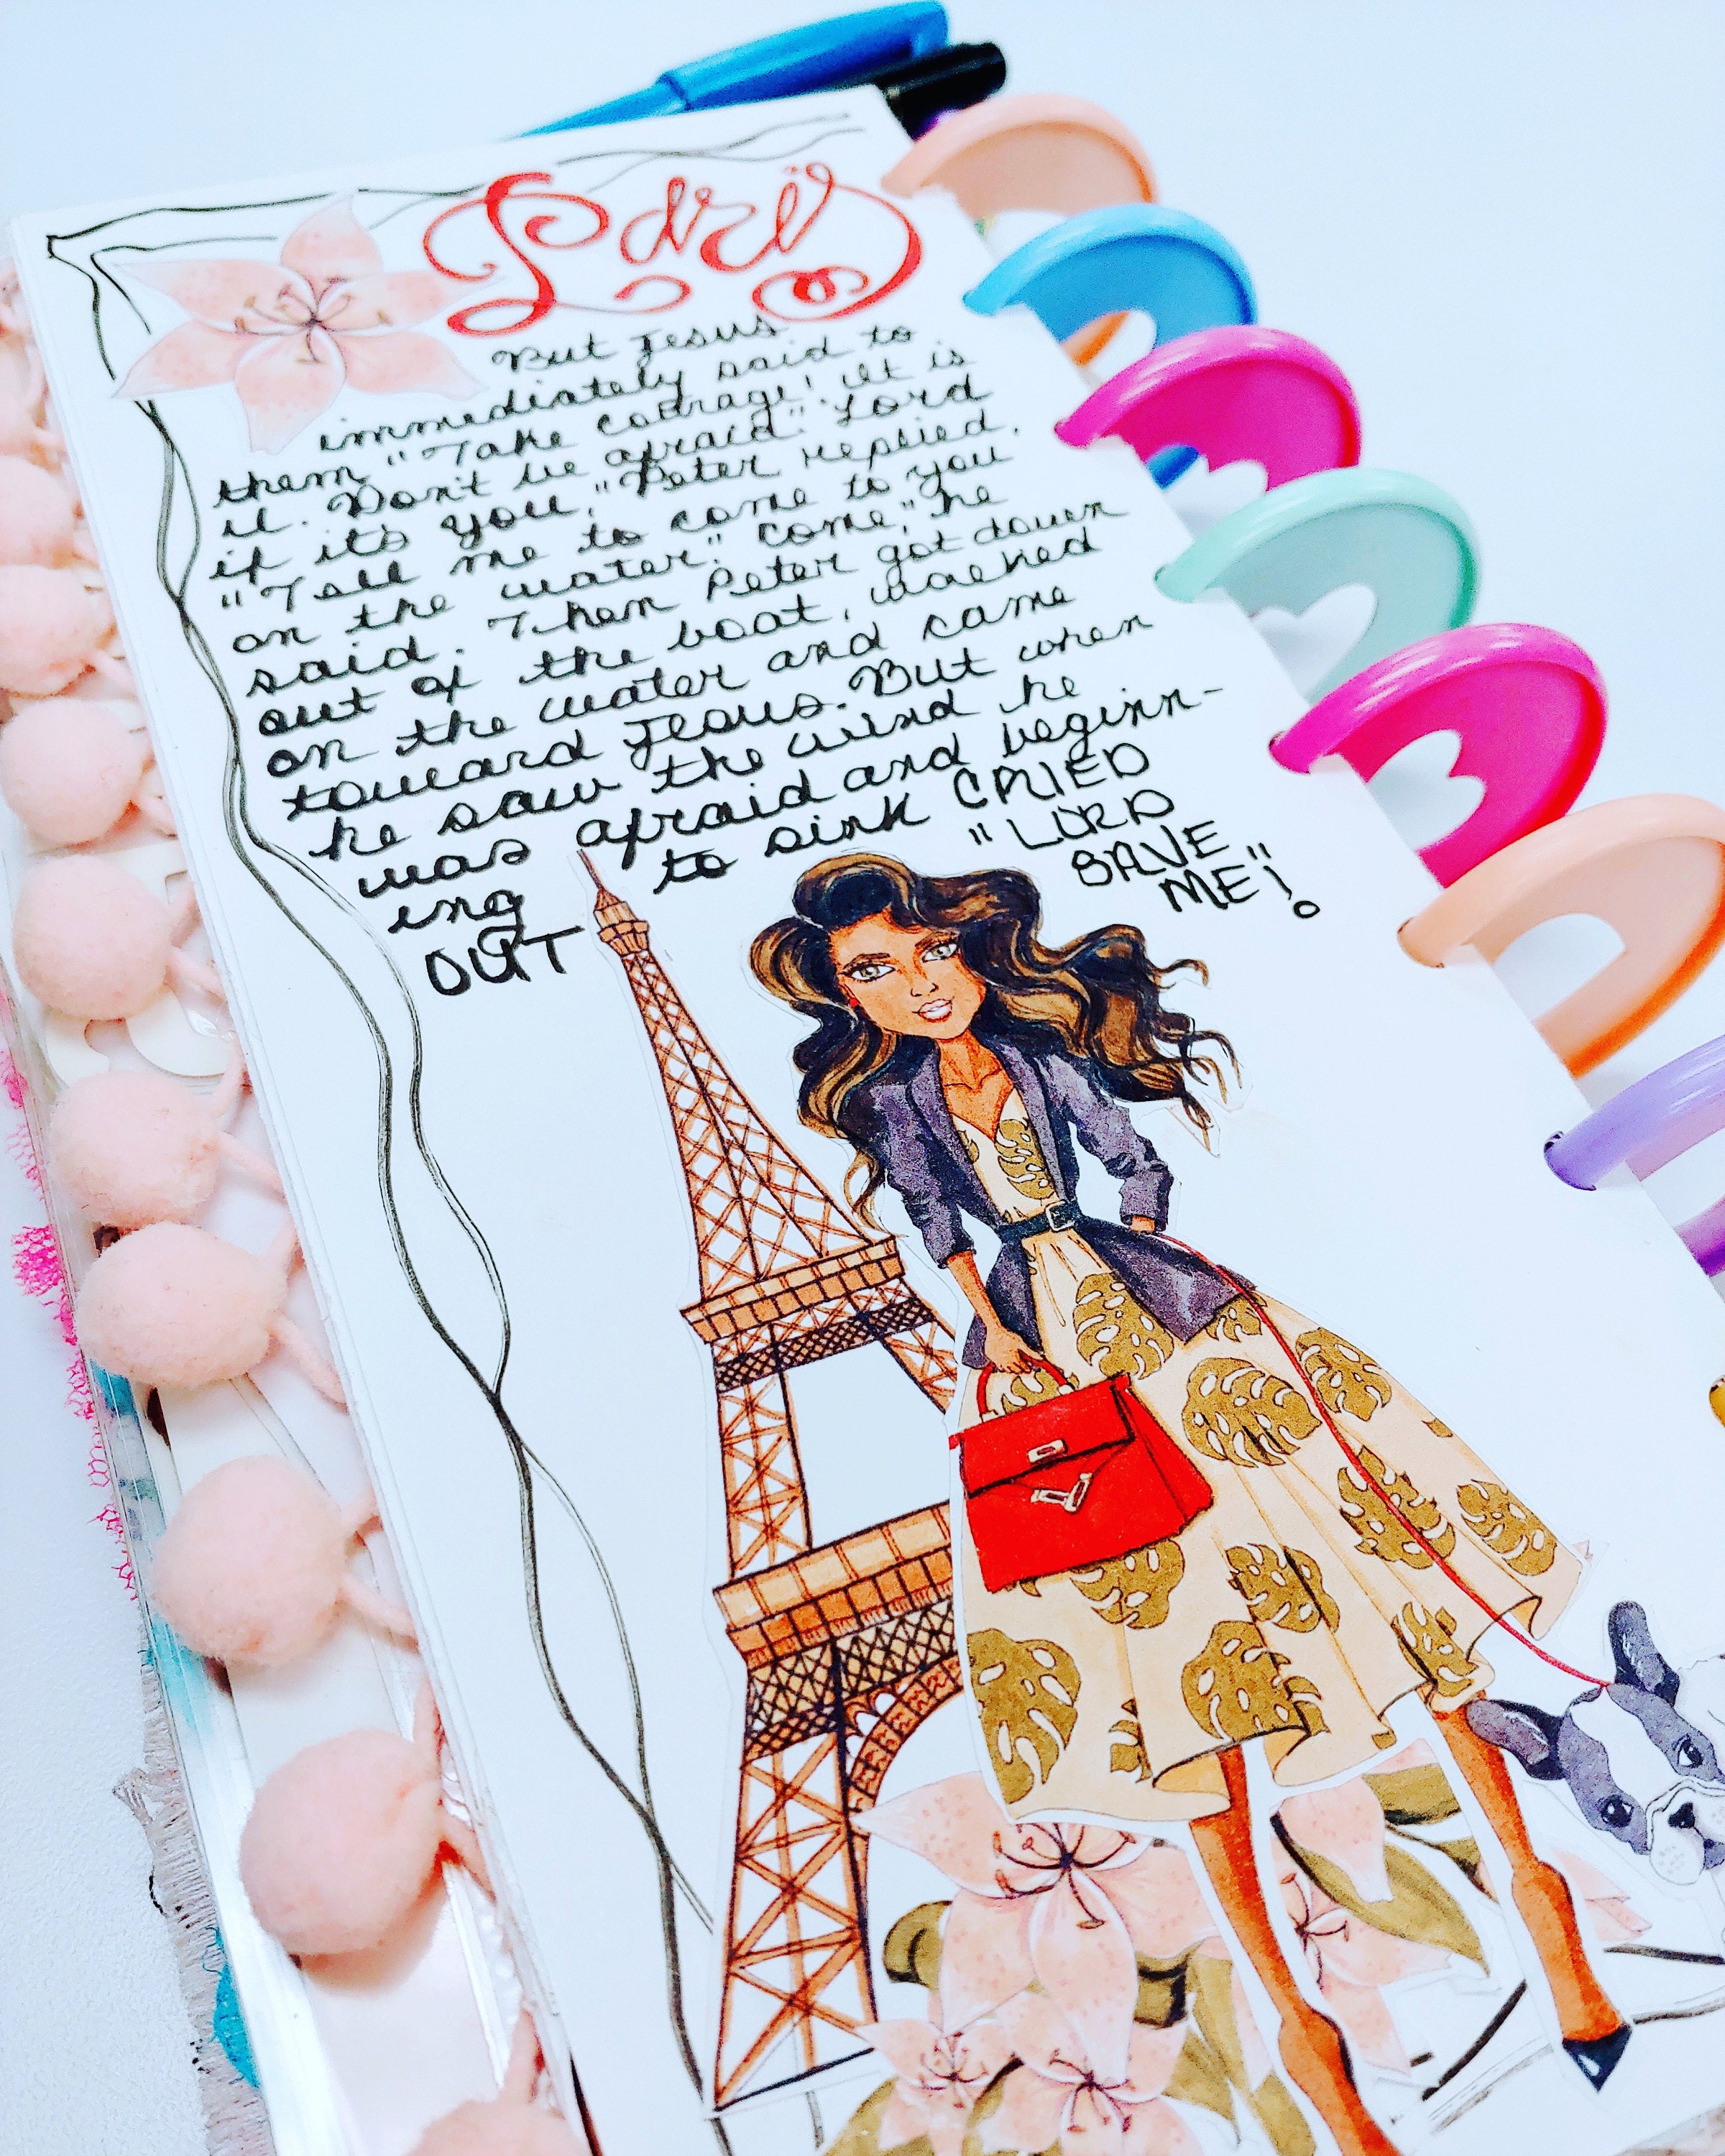 But Jesus
immediately said to
them "Take courage! It is
I. Don't be afraid." "Lord
if it's you," Peter replied,
"Tell me to come to you
on the water." "Come," he
said. Then Peter got down
out of the boat, walked
on the water and came
toward Jesus. But when
he saw the wind he
was afraid and beginn-
ing to sink CRIED
OUT "LORD
SAVE
ME"!